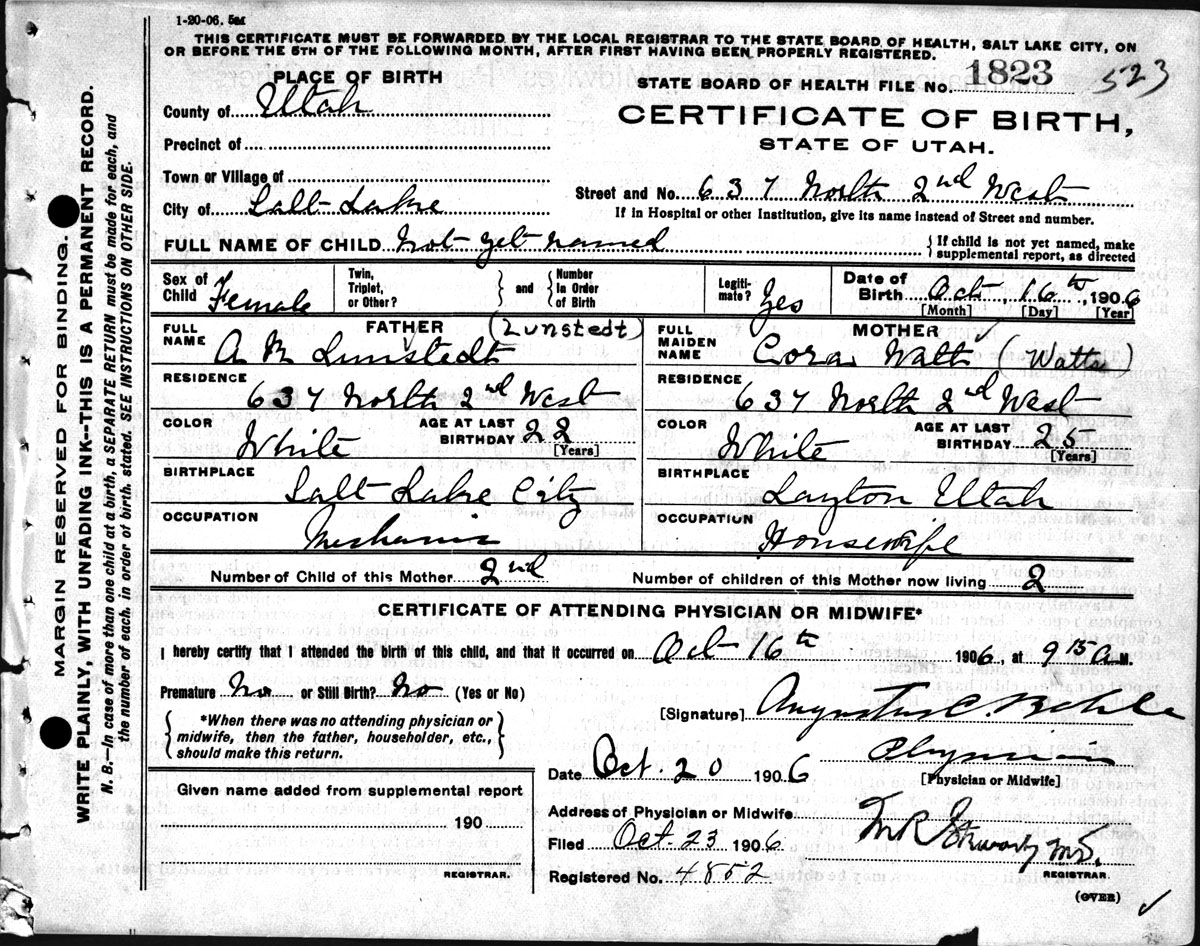 1-20-06. 5M
THIS CERTIFICATE MUST BE FORWARDED BY THE LOCAL REGISTRAR TO THE STATE BOARD OF HEALTH, SALT LAKE CITY, ON
OR BEFORE THE 5TH OF THE FOLLOWING MONTH, AFTER FIRST HAVING BEEN PROPERLY REGISTERED.
PLACE OF BIRTH
STATE BOARD OF HEALTH FILE No. 1823 523
County of Utah
CERTIFICATE OF BIRTH,
STATE OF UTAH.
Precinct of
Town or Village of
Street and No. 637 North 2nd West
City of Salt Lake
If in Hospital or other Institution, give its name instead of Street and number.
FULL NAME OF CHILD Not yet named
If child is not yet named, make
supplemental report, as directed
Sex of Child Female
Twin, Triplet, or Other? and Number in Order of Birth
Legitimate? Yes
Date of Birth Oct, 16th, 1906
[Month] [Day] [Year]
FATHER (Lunstedt)
FULL NAME A M Lunstedt
MOTHER
FULL MAIDEN NAME Cora Watts (Watts)
RESIDENCE 637 North 2nd West
RESIDENCE 637 North 2nd West
COLOR White AGE AT LAST BIRTHDAY 22 [Years]
COLOR White AGE AT LAST BIRTHDAY 25 [Years]
BIRTHPLACE Salt Lake City
BIRTHPLACE Layton Utah
OCCUPATION Mechanic
OCCUPATION Housewife
Number of Child of this Mother 2nd Number of children of this Mother now living 2
CERTIFICATE OF ATTENDING PHYSICIAN OR MIDWIFE*
I hereby certify that I attended the birth of this child, and that it occurred on Oct 16th 1906, at 9 15 A M.
Premature No or Still Birth? No (Yes or No)
*When there was no attending physician or
midwife, then the father, householder, etc.,
should make this return.
[Signature] Augustus C. Behle
Physician
[Physician or Midwife]
Date Oct. 20 1906
Given name added from supplemental report
190
REGISTRAR.
Address of Physician or Midwife
Filed Oct. 23 1906
M.D.
REGISTRAR.
Registered No. 4852
(OVER)
MARGIN RESERVED FOR BINDING.
WRITE PLAINLY, WITH UNFADING INK--THIS IS A PERMANENT RECORD.
N. B.—In case of more than one child at a birth, a SEPARATE RETURN must be made for each, and
the number of each, in order of birth, stated. SEE INSTRUCTIONS ON OTHER SIDE.